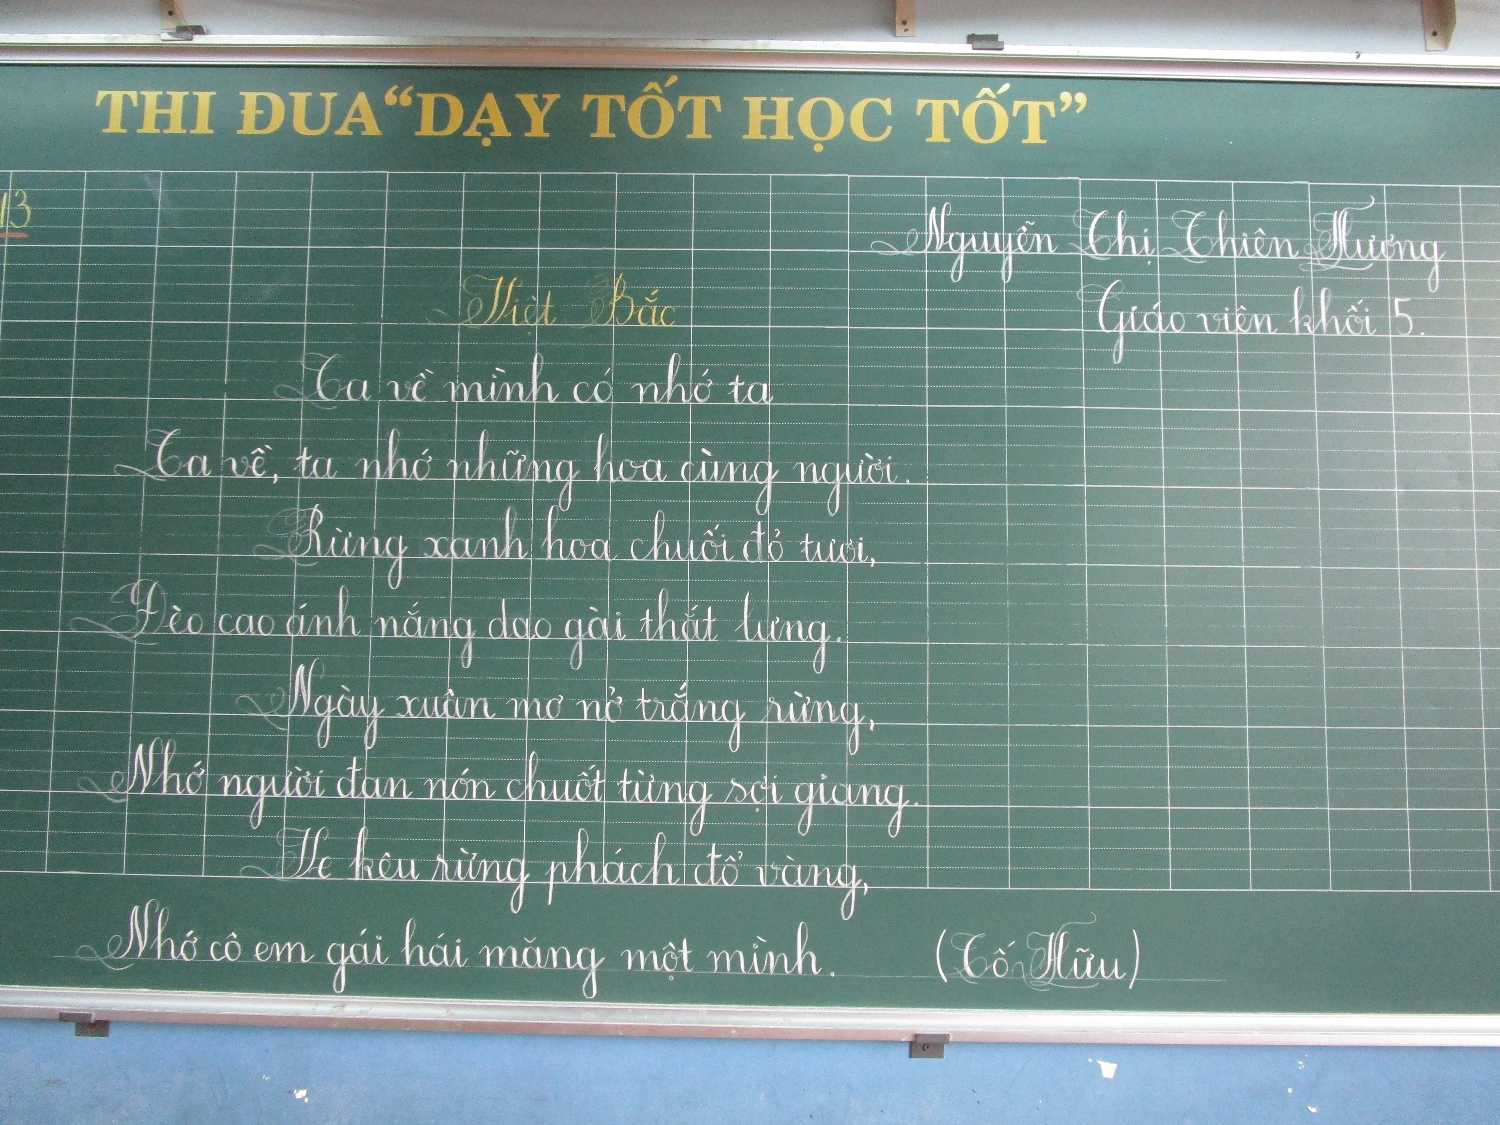 THI ĐUA “DẠY TỐT HỌC TỐT”
13
Nguyễn Thị Thiên Hương
Giáo viên khối 5.
Việt Bắc
Ta về mình có nhớ ta
Ta về, ta nhớ những hoa cùng người.
Rừng xanh hoa chuối đỏ tươi,
Đèo cao ánh nắng dao gài thắt lưng.
Ngày xuân mơ nở trắng rừng,
Nhớ người đan nón chuốt từng sợi giang.
Ve kêu rừng phách đổ vàng,
Nhớ cô em gái hái măng một mình. (Tố Hữu)